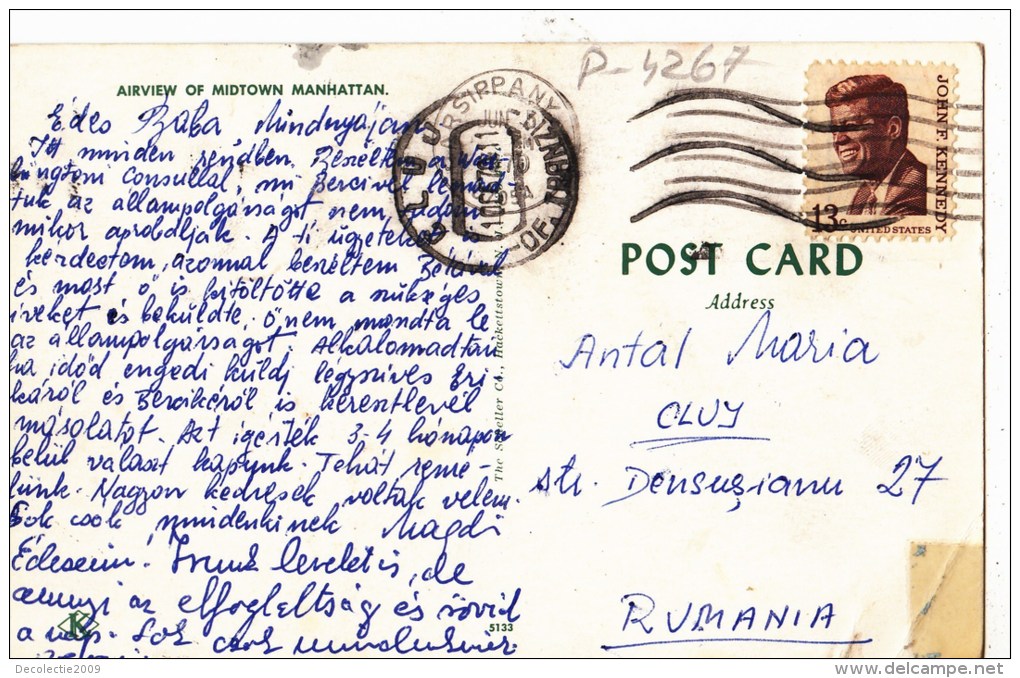 P-4267
AIRVIEW OF MIDTOWN MANHATTAN.
Édes Baba Mindnyájan
Itt minden rendben. Beszéltem a was-
hingtoni Consullal, mi Bercivel lemond-
tuk az állampolgárságot nem tudom
mikor aprobálják. A ti ügyeteket is
kérdeztem, azonnal beszéltem Bélával
és most ő is kitöltötte a szükséges
iveket és beküldte, ő nem mondta le
az állampolgárságot. Alkalomadtán
ha időd engedi küldj légyszives Eri-
káról és Bercikéről is keresztlevél
másolatot. Azt igérték 3-4 hónapon
belül választ kapunk. Tehát remé-
lünk. Nagyon kedvesek voltak velem.
Sok csok mindenkinek Magdi
Édeseim! Irunk levelet is, de
annyi az elfoglaltság és rövid
a nap. Sok csok mindenkinek
K
5133
PARSIPPANY
JUN
CLUJ
The Sheller Co., Hackettstown
JOHN F. KENNEDY
13c
UNITED STATES
POST CARD
Address
Antal Maria
CLUJ
str. Densușianu 27
RUMANIA
Decolectie2009
delcampe.net